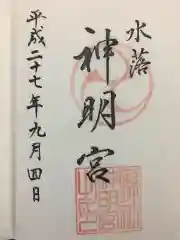 水落
神明宮
平成二十七年九月四日